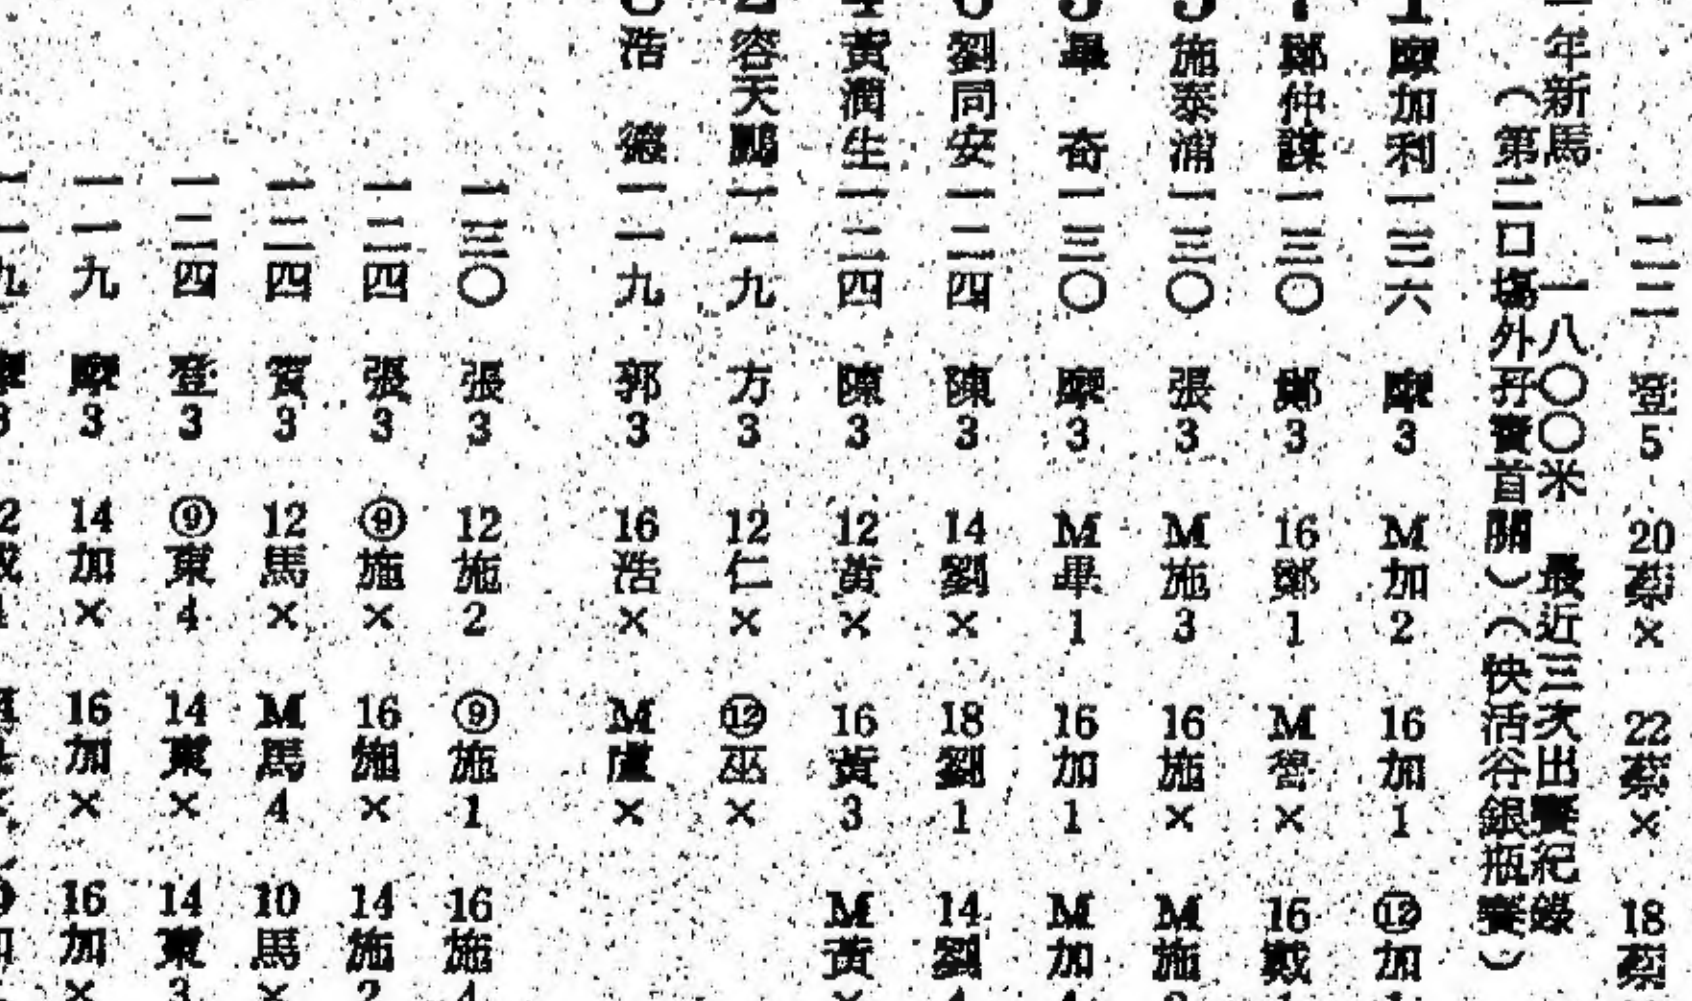 一二三 登5 20蔡× 22蔡× 18蔡
年新馬 一八〇〇米 最近三次出賽紀錄
(第二口塲外孖寳首關)(快活谷銀瓶賽)
1 摩加利 一三六 摩3 M加2 16加1 ⑫加
鄭仲謀 一三〇 鄭3 16鄭1 M習× 16戴
施泰浦 一三〇 張3 M施3 16施× M施
畢奇 一三〇 摩3 M畢1 16加1 M加
劉同安 一二四 陳3 14劉× 18劉1 14劉
黃潤生 一二四 陳3 12黃× 16黃3 M黃
容天鵬 一一九 方3 12仁× ⑫巫×
浩德 一一九 郭3 16浩× M盧×
一三〇 張3 12施2 ⑨施1 16施4
一二四 張3 ⑨施× 16施× 14施2
一三四 賀3 12馬× M馬4 10馬×
一二四 登3 ⑨東4 14東× 14東3
一一九 摩3 14加× 16加× 16加×